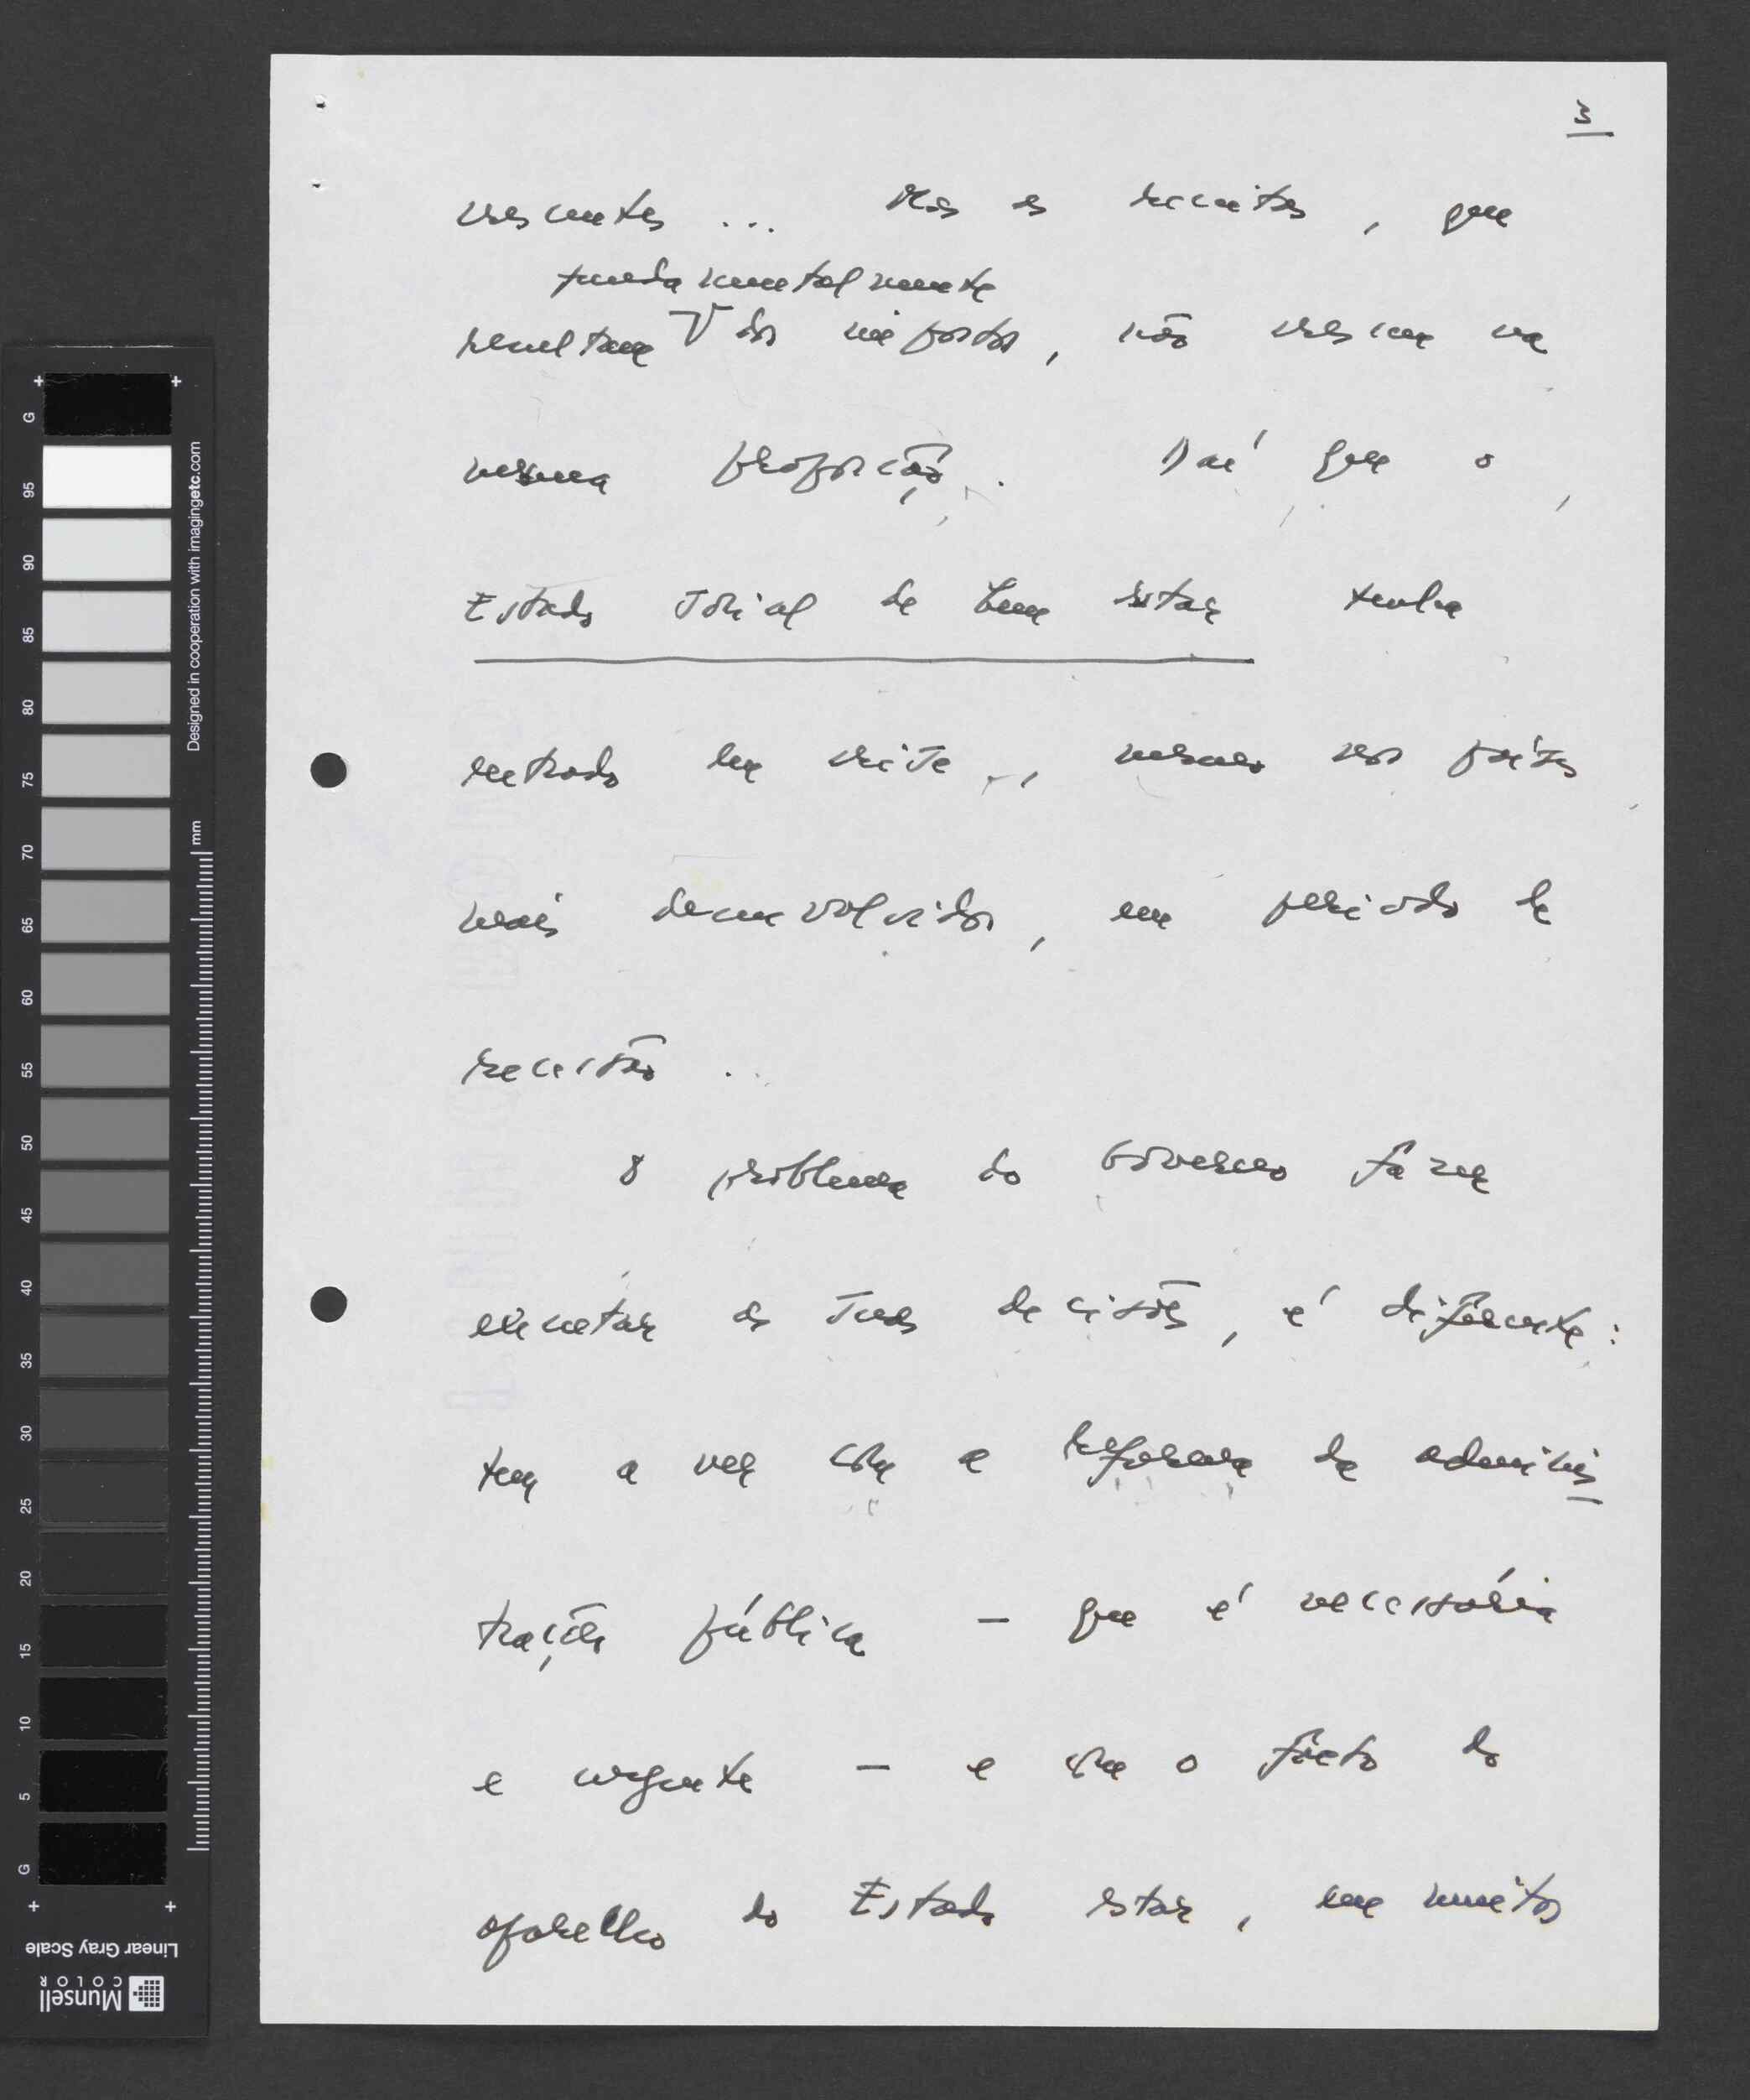 3
crescentes ... Mas as receitas, que
fundamentalmente
resultam V dos impostos, não crescem na
mesma proporção. Daí que o
Estado Social de bem estar tenha
entrado em crise, mesmo nos países
mais desenvolvidos, em período de
recessão ..
O problema do Governo fazer
executar as suas decisões, é diferente:
tem a ver com a reforma da adminis
tração pública — que é necessária
e urgente — e com o facto do
aparelho do Estado estar, em muitos
G
95
90
85
80
75
70
65
60
55
50
45
40
35
30
25
20
15
10
5
G
mm
Designed in cooperation with imagingetc.com
Linear Gray Scale
Munsell
COLOR